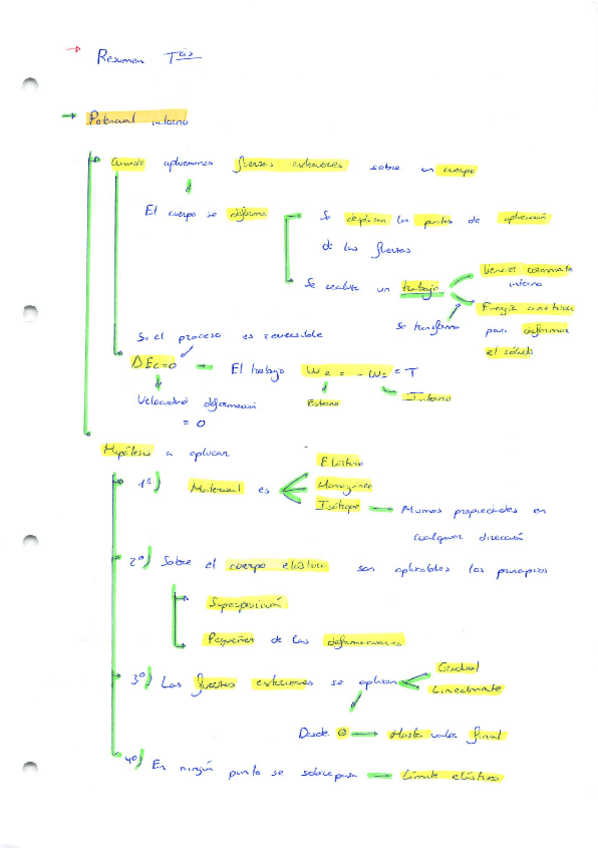 Resumen
Potencial interno
Cuando aplicamos fuerzas exteriores sobre un cuerpo
El cuerpo se deforma
Se desplazan los puntos de aplicación
de las fuerzas
Se realiza un trabajo
Vencer
interno
Energía
Se transforma
para deformar
el sólido
Si el proceso es reversible
ΔEc=0
El trabajo We = -Wi = T
Externo
Interno
Velocidad deformación
= 0
Hipótesis a aplicar
1º) Material es
Elástico
Homogeneo
Isótropo
Mismas propiedades en
cualquier dirección
2º) Sobre el cuerpo elástico son aplicables los principios
Superposición
Pequeñez de las deformaciones
3º) Las fuerzas exteriores se aplican
Gradual
Linealmente
Desde 0
Hasta valor final
4º) En ningún punto se sobrepasa
Límite elástico